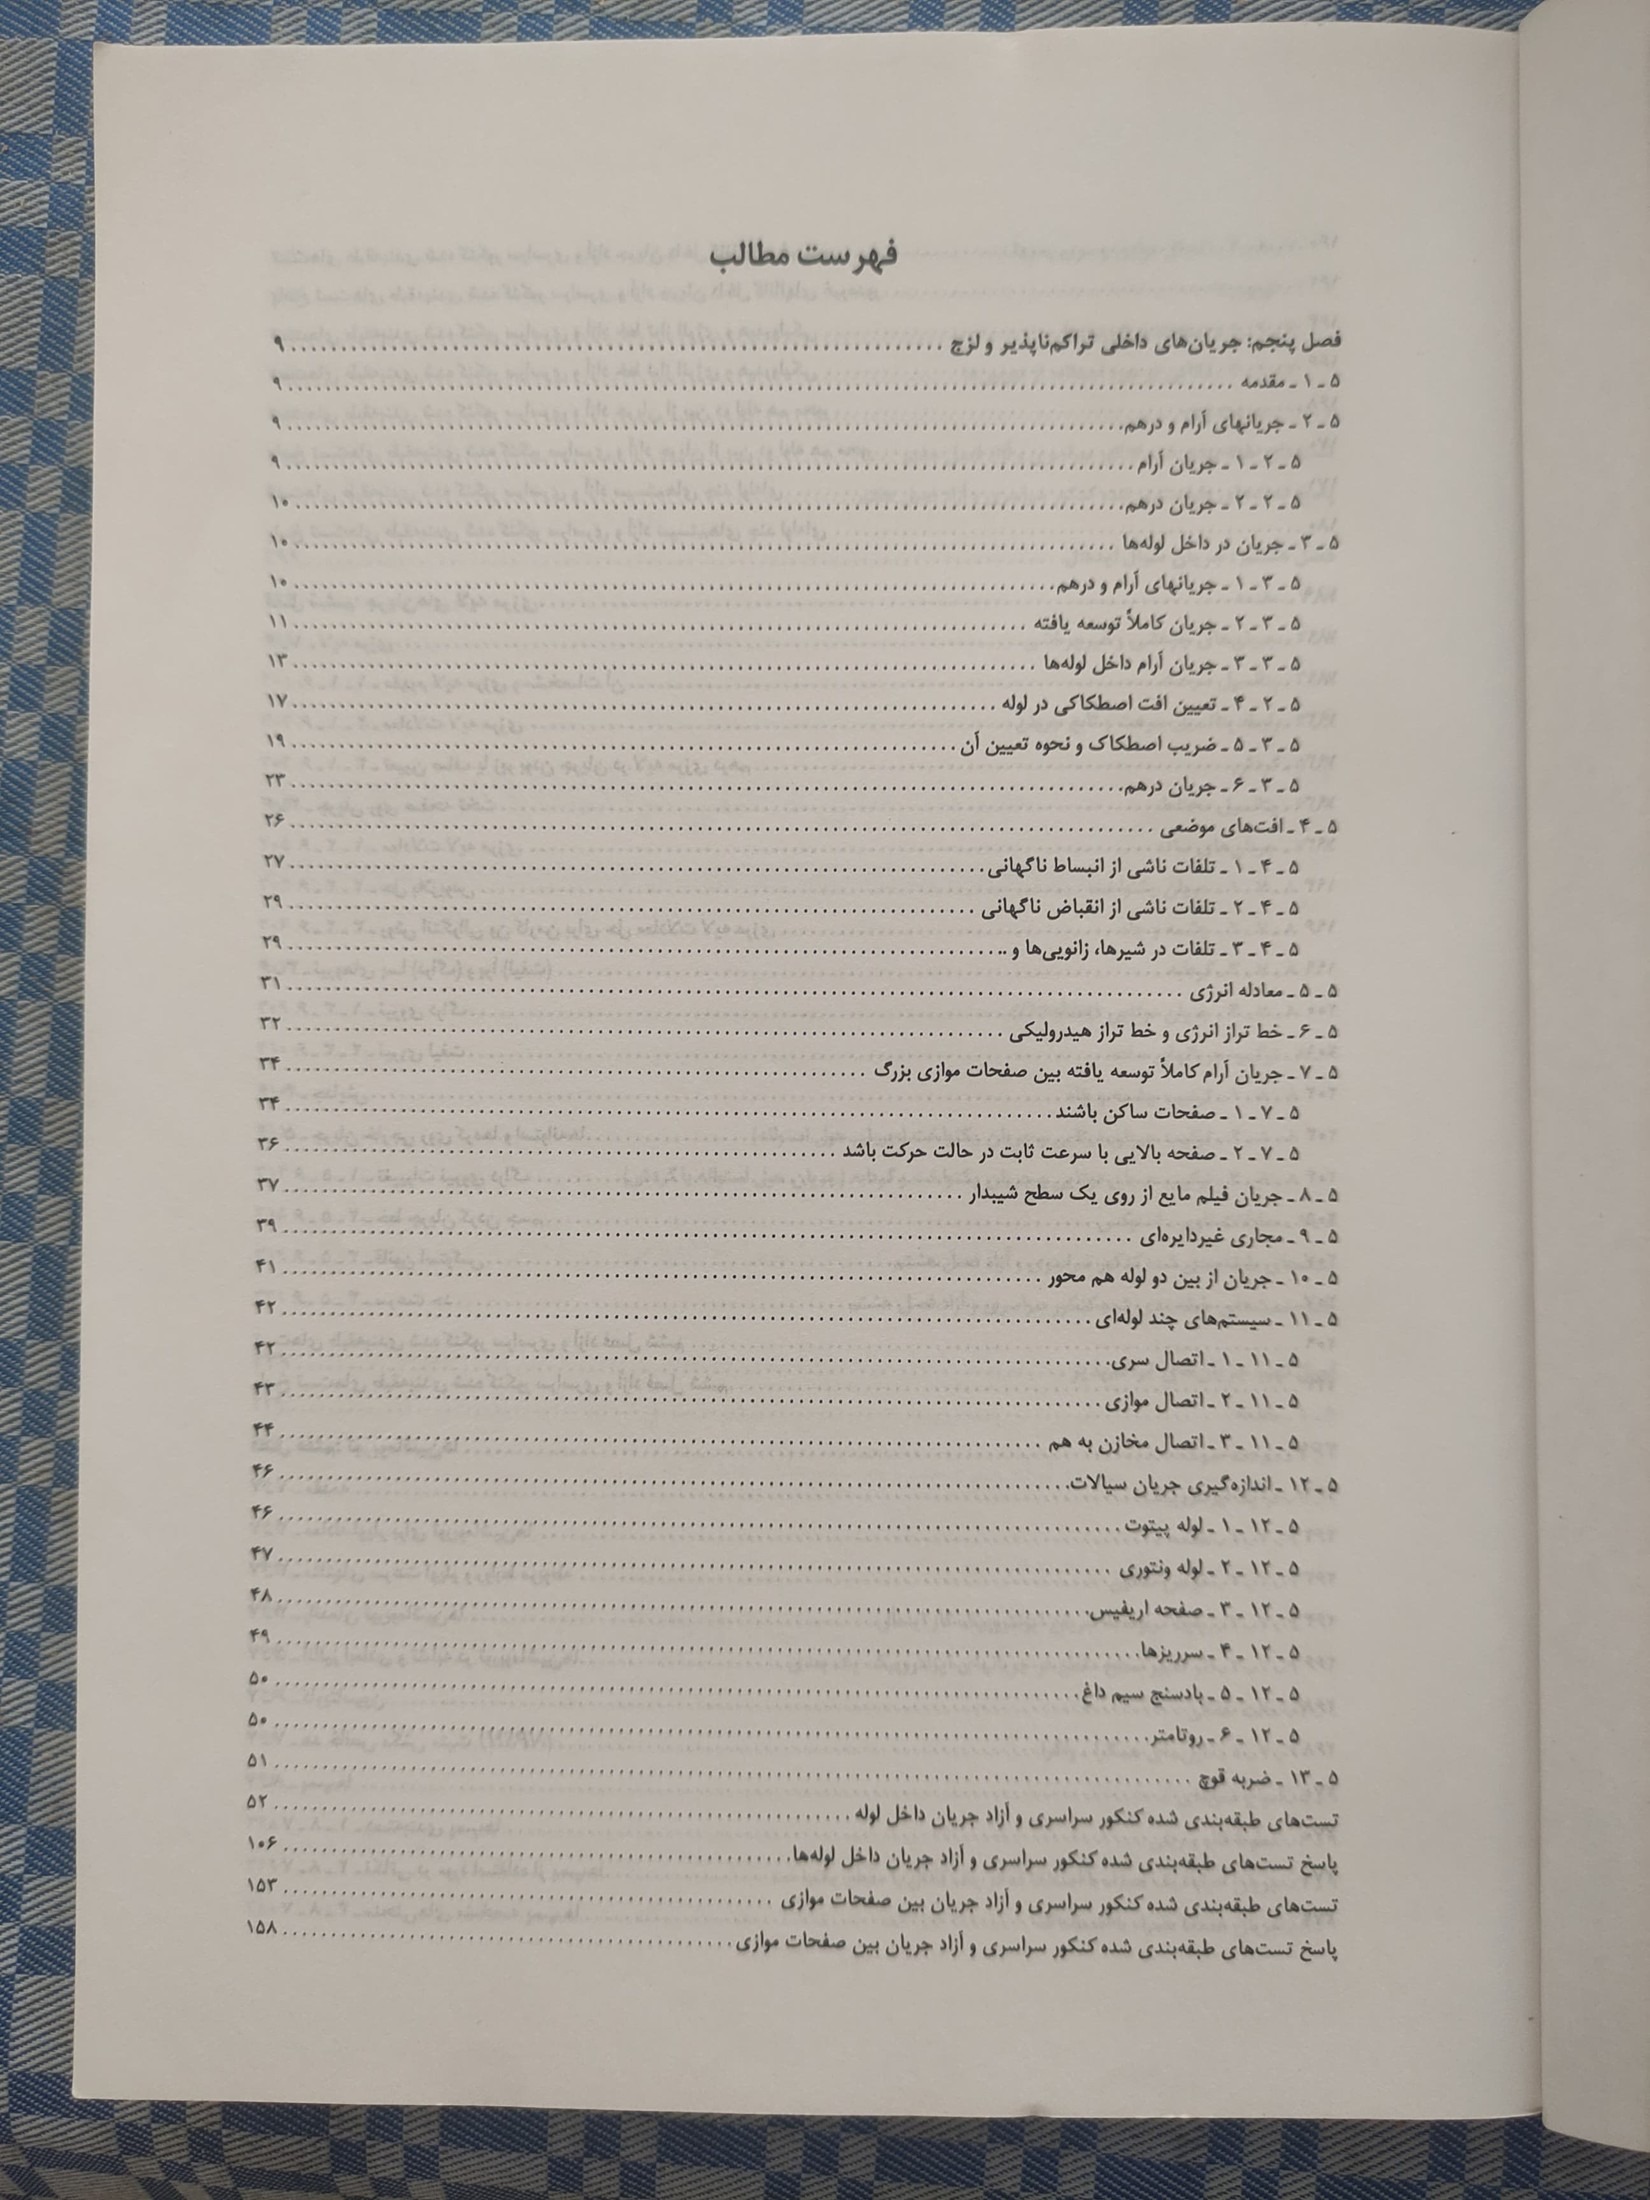 فهرست مطالب
فصل پنجم: جریان‌های داخلی تراکم‌ناپذیر و لزج ........ ۹
۵ ـ ۱ ـ مقدمه ........ ۹
۵ ـ ۲ ـ جریانهای آرام و درهم ........ ۹
۵ ـ ۲ ـ ۱ ـ جریان آرام ........ ۹
۵ ـ ۲ ـ ۲ ـ جریان درهم ........ ۱۰
۵ ـ ۳ ـ جریان در داخل لوله‌ها ........ ۱۰
۵ ـ ۳ ـ ۱ ـ جریانهای آرام و درهم ........ ۱۰
۵ ـ ۳ ـ ۲ ـ جریان کاملاً توسعه یافته ........ ۱۱
۵ ـ ۳ ـ ۳ ـ جریان آرام داخل لوله‌ها ........ ۱۳
۵ ـ ۲ ـ ۴ ـ تعیین افت اصطکاکی در لوله ........ ۱۷
۵ ـ ۳ ـ ۵ ـ ضریب اصطکاک و نحوه تعیین آن ........ ۱۹
۵ ـ ۳ ـ ۶ ـ جریان درهم ........ ۲۳
۵ ـ ۴ ـ افت‌های موضعی ........ ۲۶
۵ ـ ۴ ـ ۱ ـ تلفات ناشی از انبساط ناگهانی ........ ۲۷
۵ ـ ۴ ـ ۲ ـ تلفات ناشی از انقباض ناگهانی ........ ۲۹
۵ ـ ۴ ـ ۳ ـ تلفات در شیرها، زانویی‌ها و ........ ۲۹
۵ ـ ۵ ـ معادله انرژی ........ ۳۱
۵ ـ ۶ ـ خط تراز انرژی و خط تراز هیدرولیکی ........ ۳۲
۵ ـ ۷ ـ جریان آرام کاملاً توسعه یافته بین صفحات موازی بزرگ ........ ۳۴
۵ ـ ۷ ـ ۱ ـ صفحات ساکن باشند ........ ۳۴
۵ ـ ۷ ـ ۲ ـ صفحه بالایی با سرعت ثابت در حالت حرکت باشد ........ ۳۶
۵ ـ ۸ ـ جریان فیلم مایع از روی یک سطح شیبدار ........ ۳۷
۵ ـ ۹ ـ مجاری غیردایره‌ای ........ ۳۹
۵ ـ ۱۰ ـ جریان از بین دو لوله هم محور ........ ۴۱
۵ ـ ۱۱ ـ سیستم‌های چند لوله‌ای ........ ۴۲
۵ ـ ۱۱ ـ ۱ ـ اتصال سری ........ ۴۲
۵ ـ ۱۱ ـ ۲ ـ اتصال موازی ........ ۴۳
۵ ـ ۱۱ ـ ۳ ـ اتصال مخازن به هم ........ ۴۴
۵ ـ ۱۲ ـ اندازه‌گیری جریان سیالات ........ ۴۶
۵ ـ ۱۲ ـ ۱ ـ لوله پیتوت ........ ۴۶
۵ ـ ۱۲ ـ ۲ ـ لوله ونتوری ........ ۴۷
۵ ـ ۱۲ ـ ۳ ـ صفحه اریفیس ........ ۴۸
۵ ـ ۱۲ ـ ۴ ـ سرریزها ........ ۴۹
۵ ـ ۱۲ ـ ۵ ـ بادسنج سیم داغ ........ ۵۰
۵ ـ ۱۲ ـ ۶ ـ روتامتر ........ ۵۰
۵ ـ ۱۳ ـ ضربه قوچ ........ ۵۱
تست‌های طبقه‌بندی شده کنکور سراسری و آزاد جریان داخل لوله ........ ۵۲
پاسخ تست‌های طبقه‌بندی شده کنکور سراسری و آزاد جریان داخل لوله‌ها ........ ۱۰۶
تست‌های طبقه‌بندی شده کنکور سراسری و آزاد جریان بین صفحات موازی ........ ۱۵۳
پاسخ تست‌های طبقه‌بندی شده کنکور سراسری و آزاد جریان بین صفحات موازی ........ ۱۵۸